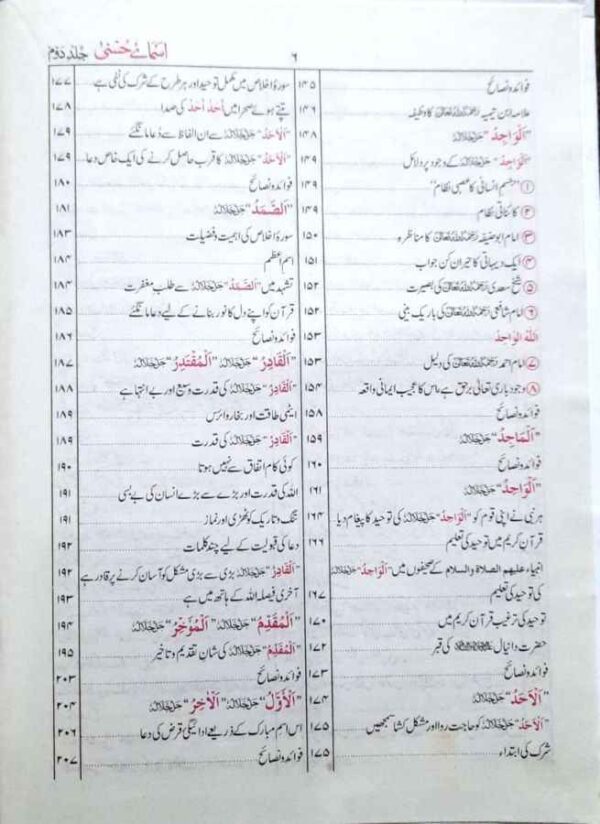 اسمائے حُسنیٰ جلد دوم
۶
فوائد و نصائح ۱۴۵
علامہ ابن تیمیہ رَحِمَهُ اللهُ تَعَالیٰ کا وظیفہ ۱۴۶
"اَلْوَاجِدُ" جَلَّ جَلَالُهُ ۱۴۸
"اَلْوَاجِدُ" جَلَّ جَلَالُهُ کے وجود پر دلائل ۱۴۹
① "جسم انسانی کا عصبی نظام" ۱۴۹
② کائناتی نظام ۱۴۹
③ امام ابوحنیفہ رَحِمَهُ اللهُ تَعَالیٰ کا مناظرہ ۱۵۰
④ ایک دیہاتی کا حیران کن جواب ۱۵۱
⑤ شیخ سعدی رَحِمَهُ اللهُ تَعَالیٰ کی بصیرت ۱۵۲
⑥ امام شافعی رَحِمَهُ اللهُ تَعَالیٰ کی باریک بینی ۱۵۲
اللهُ الْوَاحِدُ ۱۵۳
⑦ امام احمد رَحِمَهُ اللهُ تَعَالیٰ کی دلیل ۱۵۳
⑧ وجود باری تعالیٰ برحق ہے اس کا عجیب ایمانی واقعہ ۱۵۴
فوائد و نصائح ۱۵۸
"اَلْمَاجِدُ" جَلَّ جَلَالُهُ ۱۵۹
فوائد و نصائح ۱۶۰
"اَلْوَاحِدُ" جَلَّ جَلَالُهُ ۱۶۱
ہر نبی نے اپنی قوم کو "اَلْوَاحِدُ" جَلَّ جَلَالُهُ کی توحید کا پیغام دیا ۱۶۴
قرآن کریم میں توحید کی تعلیم ۱۶۶
انبیاء علیھم الصلاۃ والسلام کے صحیفوں میں "اَلْوَاحِدُ" جَلَّ جَلَالُهُ
کی توحید کی تعلیم ۱۶۷
توحید کی ترغیب قرآن کریم میں ۱۷۰
حضرت دانیال کی قبر ۱۷۲
فوائد و نصائح ۱۷۳
"اَلْاَحَدُ" جَلَّ جَلَالُهُ ۱۷۴
"اَلْاَحَدُ" جَلَّ جَلَالُهُ کو حاجت روا اور مشکل کشا سمجھیں ۱۷۵
شرک کی ابتداء ۱۷۵
سورۂ اخلاص میں مکمل توحید اور ہر طرح کے شرک کی نفی ہے ۱۷۷
تپتے ہوئے صحرا میں اَحَدٌ اَحَدٌ کی صدا ۱۷۸
"اَلْاَحَدُ" جَلَّ جَلَالُهُ سے ان الفاظ سے دُعا مانگئے ۱۷۹
"اَلْاَحَدُ" جَلَّ جَلَالُهُ کا قرب حاصل کرنے کی ایک خاص دعا ۱۷۹
فوائد و نصائح ۱۸۰
"اَلصَّمَدُ" جَلَّ جَلَالُهُ ۱۸۱
سورۂ اخلاص کی اہمیت و فضیلت ۱۸۳
اسم اعظم ۱۸۴
تشہد میں "اَلصَّمَدُ" جَلَّ جَلَالُهُ سے طلب مغفرت ۱۸۴
قرآن کو اپنے دل کا نور بنانے کے لیے دعا مانگئے ۱۸۵
فوائد و نصائح ۱۸۶
"اَلْقَادِرُ" جَلَّ جَلَالُهُ "اَلْمُقْتَدِرُ" جَلَّ جَلَالُهُ ۱۸۷
"اَلْقَادِرُ" جَلَّ جَلَالُهُ کی قدرت وسیع اور بے انتہا ہے ۱۸۸
ایٹمی طاقت اور بخار وائرس ۱۸۹
"اَلْقَادِرُ" جَلَّ جَلَالُهُ کی قدرت ۱۸۹
کوئی کام اتفاق سے نہیں ہوتا ۱۹۰
اللہ کی قدرت اور بڑے سے بڑے انسان کی بے بسی ۱۹۱
تنگ و تاریک کوٹھڑی اور نماز ۱۹۱
دعا کی قبولیت کے لیے چند کلمات ۱۹۲
"اَلْقَادِرُ" جَلَّ جَلَالُهُ بڑی سے بڑی مشکل کو آسان کرنے پر قادر ہے ۱۹۲
آخری فیصلہ اللہ کے ہاتھ میں ہے ۱۹۳
"اَلْمُقَدِّمُ" جَلَّ جَلَالُهُ "اَلْمُؤَخِّرُ" جَلَّ جَلَالُهُ ۱۹۴
"اَلْمُقَدِّمُ" جَلَّ جَلَالُهُ کی شان تقدیم و تاخیر ۱۹۵
فوائد و نصائح ۲۰۳
"اَلْاَوَّلُ" جَلَّ جَلَالُهُ "اَلْاٰخِرُ" جَلَّ جَلَالُهُ ۲۰۴
اس اسم مبارک کے ذریعے ادائیگی قرض کی دعا ۲۰۶
فوائد و نصائح ۲۰۷